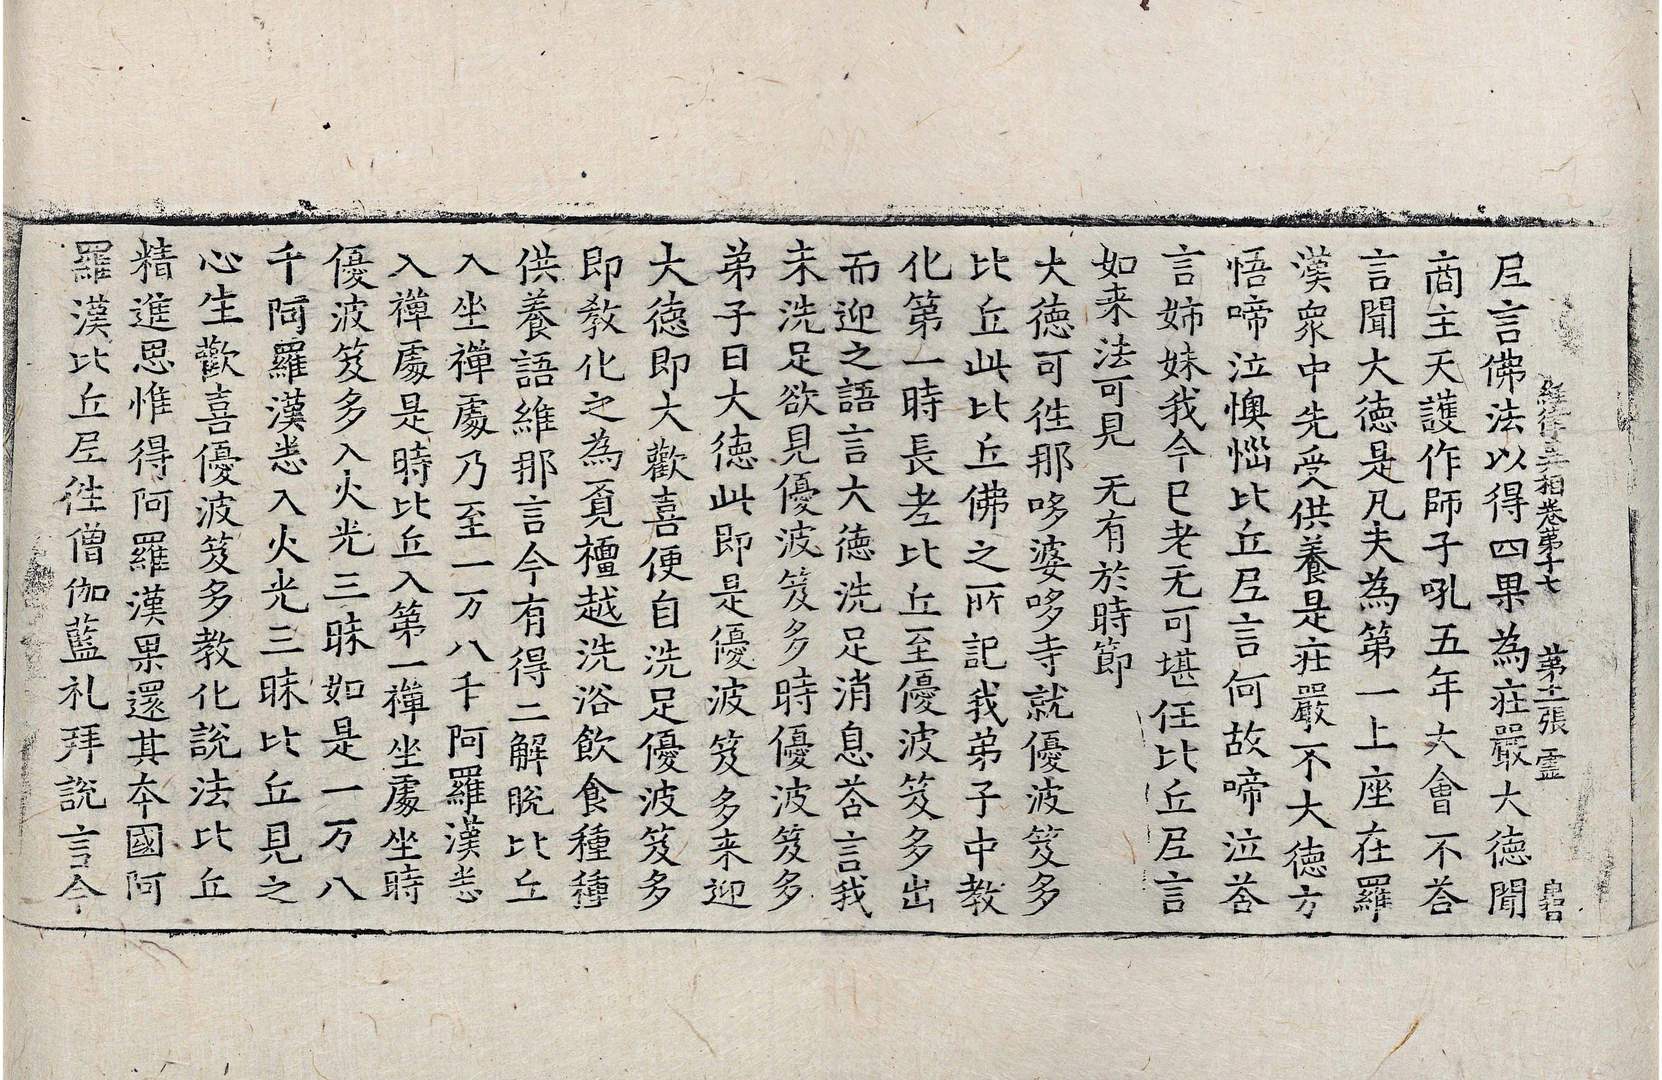 經律異相卷第十七 第十二張 靈
𡰱言佛法以得四果為莊嚴大德聞
商主天護作師子吼五年大會不荅
言聞大德是凡夫為第一上座在羅
漢衆中先受供養是莊嚴不大德方
悟啼泣懊惱比丘𡰱言何故啼泣荅
言姉妹我今已老无可堪任比丘𡰱言
如来法可見 无有於時節
大德可徃那哆婆哆寺就優波笈多
比丘此比丘佛之所記我弟子中教
化第一時長老比丘至優波笈多出
而迎之語言大德洗足消息荅言我
未洗足欲見優波笈多時優波笈多
弟子曰大德此即是優波笈多来迎
大德即大歡喜便自洗足優波笈多
即教化之為覓檀越洗浴飲食種種
供養語維那言今有得二解脫比丘
入坐禪處乃至一万八千阿羅漢悉
入禪處是時比丘入第一禪坐處坐時
優波笈多入火光三昧如是一万八
千阿羅漢悉入火光三昧比丘見之
心生歡喜優波笈多教化說法比丘
精進思惟得阿羅漢果還其本國阿
羅漢比丘𡰱徃僧伽藍礼拜說言今